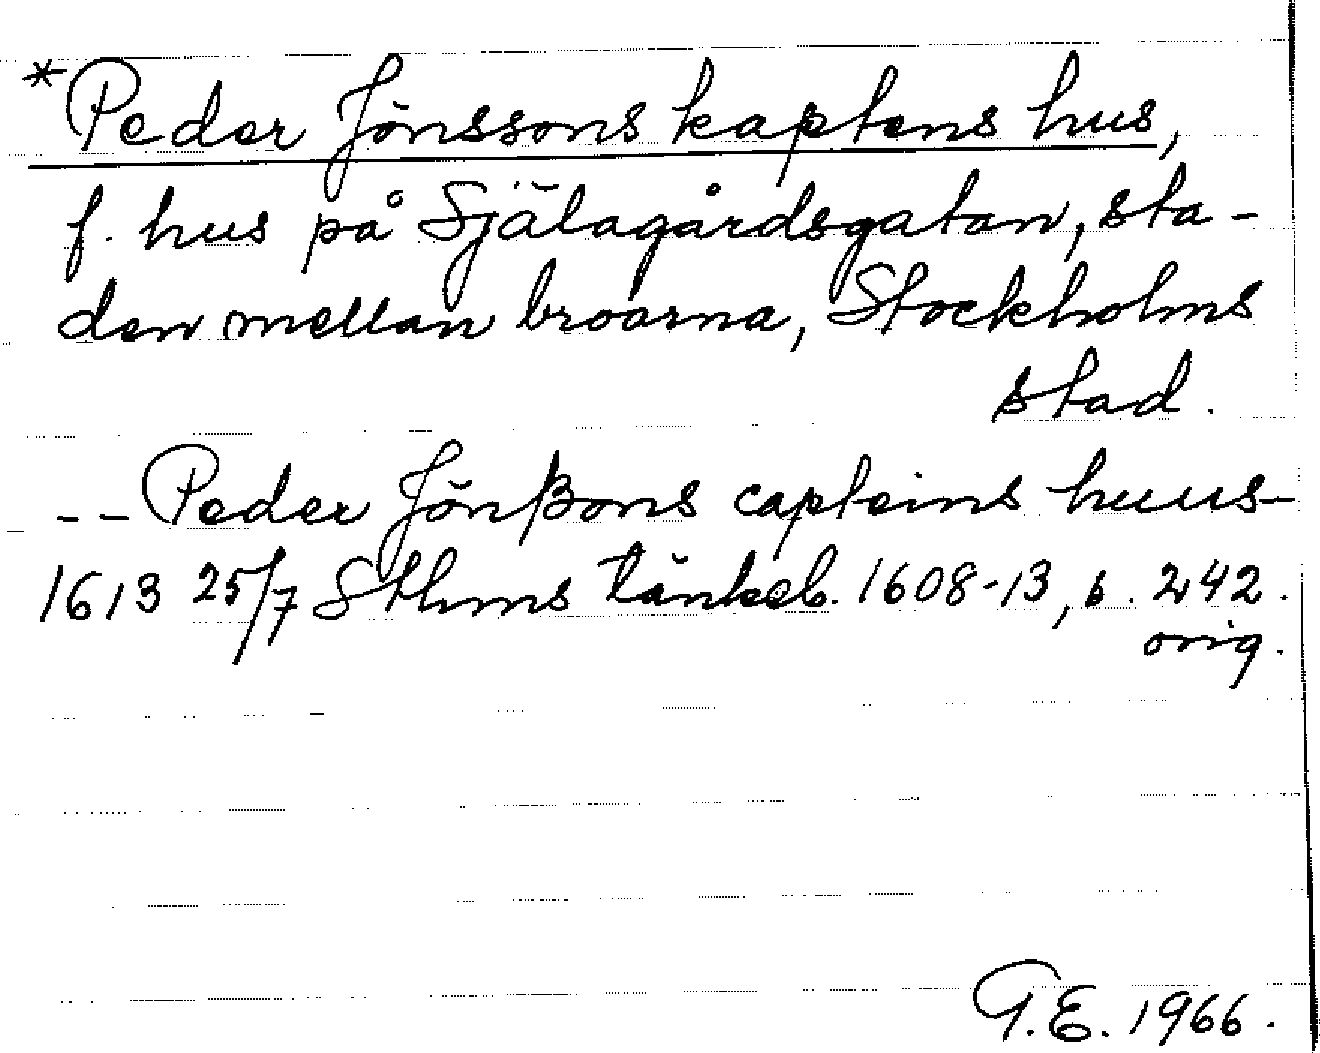 *Peder Jönssons kaptens hus,
f. hus på Själagårdsgatan, sta-
den mellan broarna, Stockholms
stad.
-- Peder Jönßons capteins huus-
1613 25/7 Sthms tänkeb. 1608-13, s. 242.
orig.
G.E. 1966.